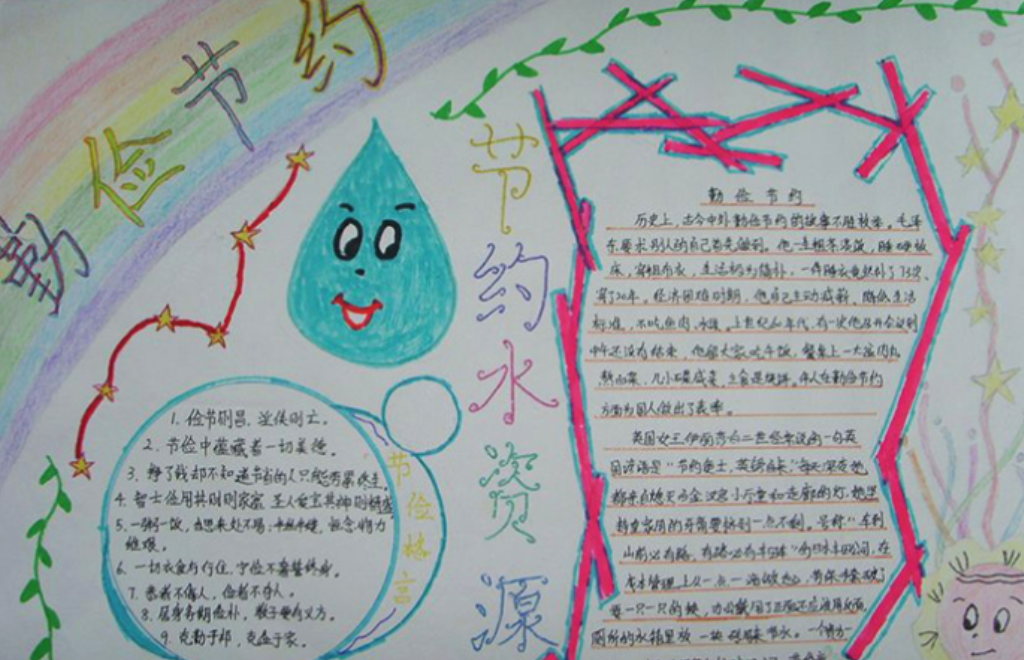 勤俭节约
节约水资源
节俭格言
1. 俭节则昌，淫佚则亡。
2. 节俭中蕴藏着一切美德。
3. 挣了钱却不知道节省的人只能劳累终生。
4. 智士俭用其财则家富 圣人爱宝其神则精盛
5. 一粥一饭，当思来处不易，半丝半缕，恒念物力
维艰。
6. 一切衣食与行住，守俭不奢誓终身。
7. 奢者不俭人，俭者不夺人。
8. 居身务期俭朴，教子要有义方。
9. 克勤于邦，克俭于家。
勤俭节约
历史上，古今中外勤俭节约的故事不胜枚举。毛泽
东要求别人的自己首先做到。他一生粗茶淡饭，睡硬板
床，穿粗布衣，生活极为简朴，一件睡衣竟然补了73次、
穿了20年。经济困难时期，他自己主动减薪、降低生活
标准，不吃鱼肉、水果。上世纪60年代，有一次他召开会议到
中午还没有结束，他留大家吃午饭，餐桌上一大盆肉丸
熬白菜、几小碟咸菜，主食是烧饼。伟人在勤俭节约
方面为国人做出了表率。
英国女王伊丽莎白二世经常说的一句英
国谚语是“节约便士，英镑自来”，每天深夜她
都亲自熄灭白金汉宫小厅堂和走廊的灯，她坚
持皇家用的牙膏要挤到一点不剩。号称“车到
山前必有路，有路必有丰田车”的日本丰田公司，在
成本管理上从一点一滴做起，劳保手套破了
要一只一只的换，办公纸用了正面还应该用反面，
厕所的水箱里放一块砖用来节水。一个